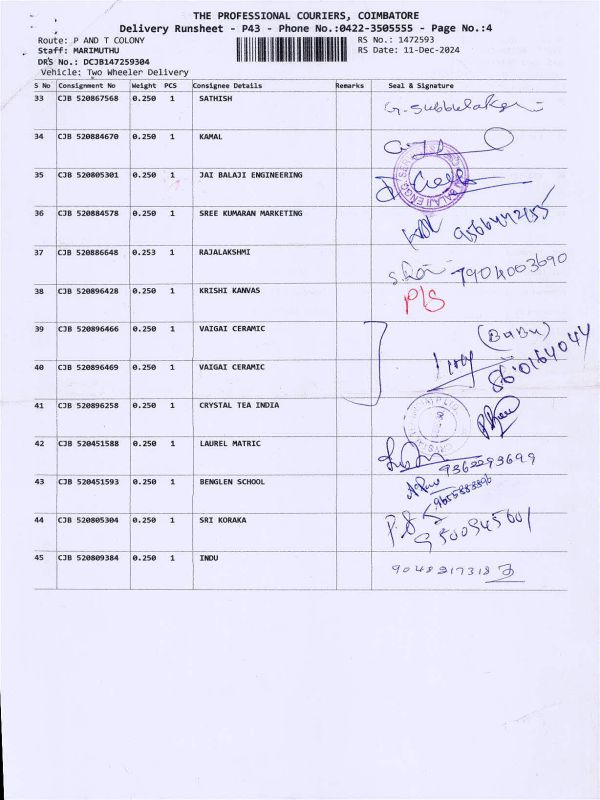 THE PROFESSIONAL COURIERS, COIMBATORE
Delivery Runsheet - P43 - Phone No.:0422-3505555 - Page No.:4
Route: P AND T COLONY RS No.: 1472593
Staff: MARIMUTHU RS Date: 11-Dec-2024
DRS No.: DCJB147259304
Vehicle: Two Wheeler Delivery
S No Consignment No Weight PCS Consignee Details Remarks Seal & Signature
33 CJB 520867568 0.250 1 SATHISH
34 CJB 520884670 0.250 1 KAMAL
35 CJB 520805301 0.250 1 JAI BALAJI ENGINEERING
36 CJB 520884578 0.250 1 SREE KUMARAN MARKETING
37 CJB 520886648 0.253 1 RAJALAKSHMI 7904003690
38 CJB 520896428 0.250 1 KRISHI KANVAS P/S
39 CJB 520896466 0.250 1 VAIGAI CERAMIC (BABU)
40 CJB 520896469 0.250 1 VAIGAI CERAMIC 8610164044
41 CJB 520896258 0.250 1 CRYSTAL TEA INDIA
42 CJB 520451588 0.250 1 LAUREL MATRIC 9360293699
43 CJB 520451593 0.250 1 BENGLEN SCHOOL
44 CJB 520805304 0.250 1 SRI KORAKA 9500945001
45 CJB 520809384 0.250 1 INDU 9048917318